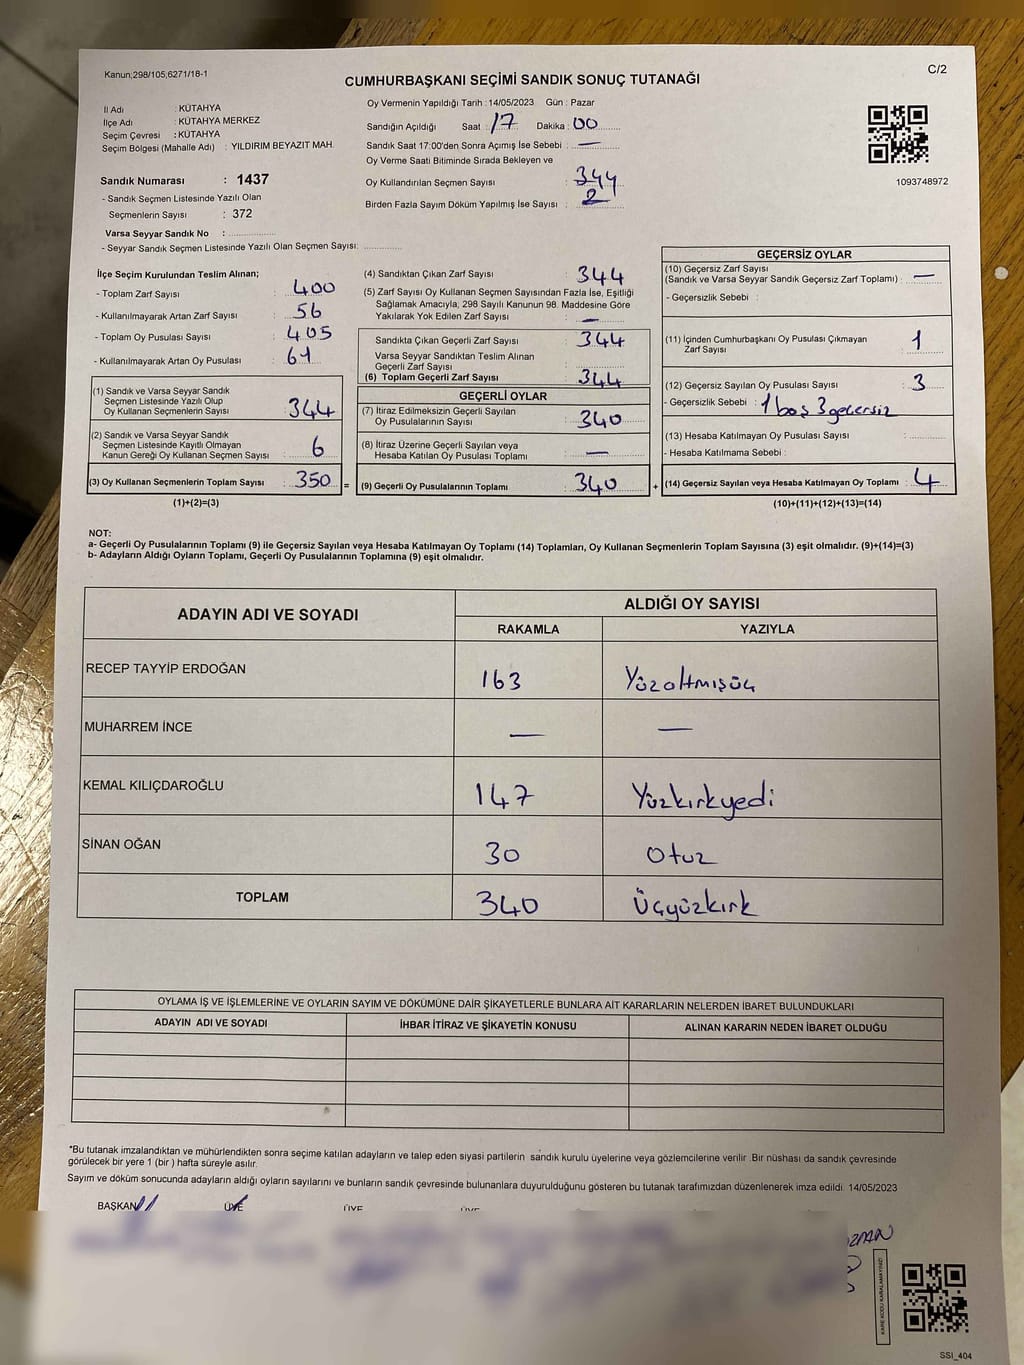 Kanun;298/105;6271/18-1
C/2
CUMHURBAŞKANI SEÇİMİ SANDIK SONUÇ TUTANAĞI
İl Adı : KÜTAHYA
İlçe Adı : KÜTAHYA MERKEZ
Seçim Çevresi : KÜTAHYA
Seçim Bölgesi (Mahalle Adı) : YILDIRIM BEYAZIT MAH.
Sandık Numarası : 1437
- Sandık Seçmen Listesinde Yazılı Olan
Seçmenlerin Sayısı : 372
Varsa Seyyar Sandık No :
- Seyyar Sandık Seçmen Listesinde Yazılı Olan Seçmen Sayısı:
Oy Vermenin Yapıldığı Tarih : 14/05/2023 Gün : Pazar
Sandığın Açıldığı Saat : 17 Dakika : 00
Sandık Saat 17:00'den Sonra Açımış İse Sebebi : —
Oy Verme Saati Bitiminde Sırada Bekleyen ve
Oy Kullandırılan Seçmen Sayısı : 344
Birden Fazla Sayım Döküm Yapılmış İse Sayısı : 2
1093748972
İlçe Seçim Kurulundan Teslim Alınan;
- Toplam Zarf Sayısı : 400
- Kullanılmayarak Artan Zarf Sayısı : 56
- Toplam Oy Pusulası Sayısı : 405
- Kullanılmayarak Artan Oy Pusulası : 61
(1) Sandık ve Varsa Seyyar Sandık
Seçmen Listesinde Yazılı Olup
Oy Kullanan Seçmenlerin Sayısı : 344
(2) Sandık ve Varsa Seyyar Sandık
Seçmen Listesinde Kayıtlı Olmayan
Kanun Gereği Oy Kullanan Seçmen Sayısı : 6
(3) Oy Kullanan Seçmenlerin Toplam Sayısı : 350 =
(1)+(2)=(3)
(4) Sandıktan Çıkan Zarf Sayısı : 344
(5) Zarf Sayısı Oy Kullanan Seçmen Sayısından Fazla İse, Eşitliği
Sağlamak Amacıyla; 298 Sayılı Kanunun 98. Maddesine Göre
Yakılarak Yok Edilen Zarf Sayısı : —
Sandıkta Çıkan Geçerli Zarf Sayısı : 344
Varsa Seyyar Sandıktan Teslim Alınan
Geçerli Zarf Sayısı :
(6) Toplam Geçerli Zarf Sayısı : 344
GEÇERLİ OYLAR
(7) İtiraz Edilmeksizin Geçerli Sayılan
Oy Pusulalarının Sayısı : 340
(8) İtiraz Üzerine Geçerli Sayılan veya
Hesaba Katılan Oy Pusulası Toplamı : —
(9) Geçerli Oy Pusulalarının Toplamı : 340 +
GEÇERSİZ OYLAR
(10) Geçersiz Zarf Sayısı
(Sandık ve Varsa Seyyar Sandık Geçersiz Zarf Toplamı) : —
- Geçersizlik Sebebi :
(11) İçinden Cumhurbaşkanı Oy Pusulası Çıkmayan
Zarf Sayısı : 1
(12) Geçersiz Sayılan Oy Pusulası Sayısı : 3
- Geçersizlik Sebebi : 1 boş 3 geçersiz
(13) Hesaba Katılmayan Oy Pusulası Sayısı :
- Hesaba Katılmama Sebebi :
(14) Geçersiz Sayılan veya Hesaba Katılmayan Oy Toplamı : 4
(10)+(11)+(12)+(13)=(14)
NOT:
a- Geçerli Oy Pusulalarının Toplamı (9) ile Geçersiz Sayılan veya Hesaba Katılmayan Oy Toplamı (14) Toplamları, Oy Kullanan Seçmenlerin Toplam Sayısına (3) eşit olmalıdır. (9)+(14)=(3)
b- Adayların Aldığı Oyların Toplamı, Geçerli Oy Pusulalarının Toplamına (9) eşit olmalıdır.
ADAYIN ADI VE SOYADI ALDIĞI OY SAYISI
RAKAMLA YAZIYLA
RECEP TAYYİP ERDOĞAN 163 Yüzaltmışüç
MUHARREM İNCE — —
KEMAL KILIÇDAROĞLU 147 Yüzkırkyedi
SİNAN OĞAN 30 Otuz
TOPLAM 340 Üçyüzkırk
OYLAMA İŞ VE İŞLEMLERİNE VE OYLARIN SAYIM VE DÖKÜMÜNE DAİR ŞİKAYETLERLE BUNLARA AİT KARARLARIN NELERDEN İBARET BULUNDUKLARI
ADAYIN ADI VE SOYADI İHBAR İTİRAZ VE ŞİKAYETİN KONUSU ALINAN KARARIN NEDEN İBARET OLDUĞU
*Bu tutanak imzalandıktan ve mühürlendikten sonra seçime katılan adayların ve talep eden siyasi partilerin sandık kurulu üyelerine veya gözlemcilerine verilir. Bir nüshası da sandık çevresinde
görülecek bir yere 1 (bir ) hafta süreyle asılır.
Sayım ve döküm sonucunda adayların aldığı oyların sayılarını ve bunların sandık çevresinde bulunanlara duyurulduğunu gösteren bu tutanak tarafımızdan düzenlenerek imza edildi. 14/05/2023
BAŞKAN ÜYE ÜYE ÜYE
KARE KODU KARALAMAYINIZ!
SSI_404